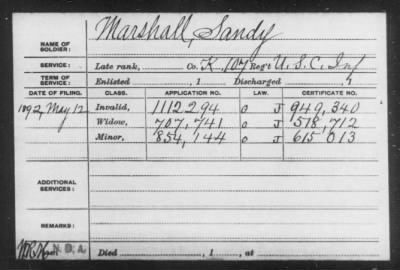 Marshall, Sandy
NAME OF SOLDIER:
SERVICE: Late rank, Co. K, 107 Reg't U. S. C. Inf
TERM OF SERVICE: Enlisted , 1 Discharged , 1
DATE OF FILING. CLASS. APPLICATION NO. LAW. CERTIFICATE NO.
1892, May 12 Invalid, 1112294 O J 949,340
Widow, 707,741 O J 518,712
Minor, 854,144 O J 615013
ADDITIONAL SERVICES:
REMARKS:
N. D. A.
Died , 1 , at